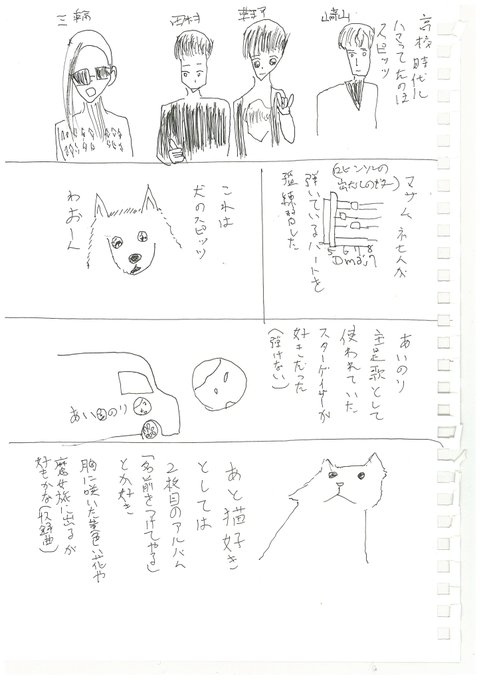 高校時代に
ハマってたのは
スピッツ
崎山
草野
田村
三輪
マサムネさんが
(ロビンソンの
出だしのギター)
弾いているパートを
猛練習した
5 6 7 8
Dmaj7
これは
犬のスピッツ
わおーん
あいのり
主題歌として
使われていた
スターゲイザーが
好きだった
(弾けない)
あいのり
あと猫好き
としては
2枚目のアルバム
「名前をつけてやる」
とか好き
胸に咲いた黄色い花や
魔女旅に出るが
好きかな(収録曲)